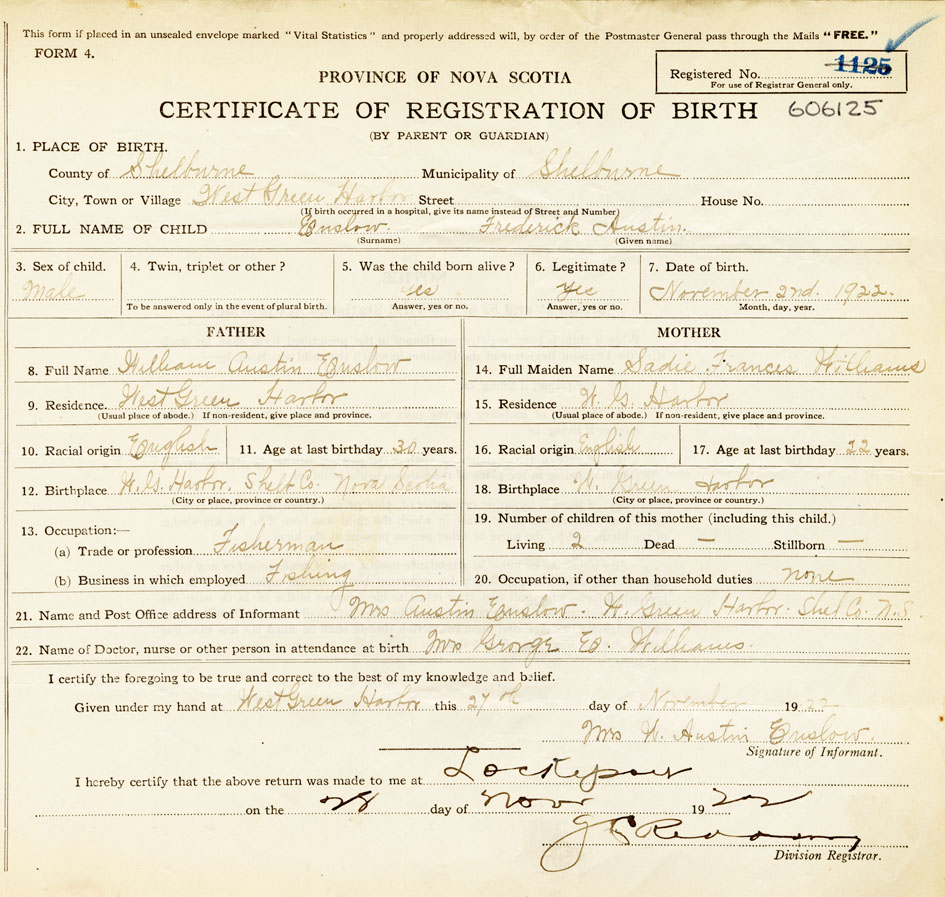 This form if placed in an unsealed envelope marked "Vital Statistics" and properly addressed will, by order of the Postmaster General pass through the Mails "FREE."
FORM 4.
Registered No. 1125
For use of Registrar General only.
PROVINCE OF NOVA SCOTIA
CERTIFICATE OF REGISTRATION OF BIRTH 606125
(BY PARENT OR GUARDIAN)
1. PLACE OF BIRTH.
County of Shelburne Municipality of Shelburne
City, Town or Village West Green Harbor Street House No.
(If birth occurred in a hospital, give its name instead of Street and Number)
2. FULL NAME OF CHILD Enslow Frederick Austin.
(Surname) (Given name)
3. Sex of child. 4. Twin, triplet or other? 5. Was the child born alive? 6. Legitimate? 7. Date of birth.
Male yes yes November 2nd. 1922.
To be answered only in the event of plural birth. Answer, yes or no. Answer, yes or no. Month, day, year.
FATHER
8. Full Name William Austin Enslow
9. Residence. West Green Harbor
(Usual place of abode.) If non-resident, give place and province.
10. Racial origin English 11. Age at last birthday 30 years.
12. Birthplace W. G. Harbor. Shelb Co. Nova Scotia
(City or place, province or country.)
13. Occupation:—
(a) Trade or profession Fisherman
(b) Business in which employed Fishing
MOTHER
14. Full Maiden Name Sadie Frances Williams
15. Residence W. G. Harbor
(Usual place of abode.) If non-resident, give place and province.
16. Racial origin English 17. Age at last birthday 22 years.
18. Birthplace W. Green Harbor
(City or place, province or country.)
19. Number of children of this mother (including this child.)
Living 2 Dead — Stillborn —
20. Occupation, if other than household duties none
21. Name and Post Office address of Informant Mrs Austin Enslow. W. Green Harbor. Shel Co. N.S
22. Name of Doctor, nurse or other person in attendance at birth Mrs George Ed. Williams.
I certify the foregoing to be true and correct to the best of my knowledge and belief.
Given under my hand at West Green Harbor this 27th day of November 1922
Mrs W. Austin Enslow.
Signature of Informant.
I hereby certify that the above return was made to me at Lockeport
on the 28 day of Novr 1922
Division Registrar.